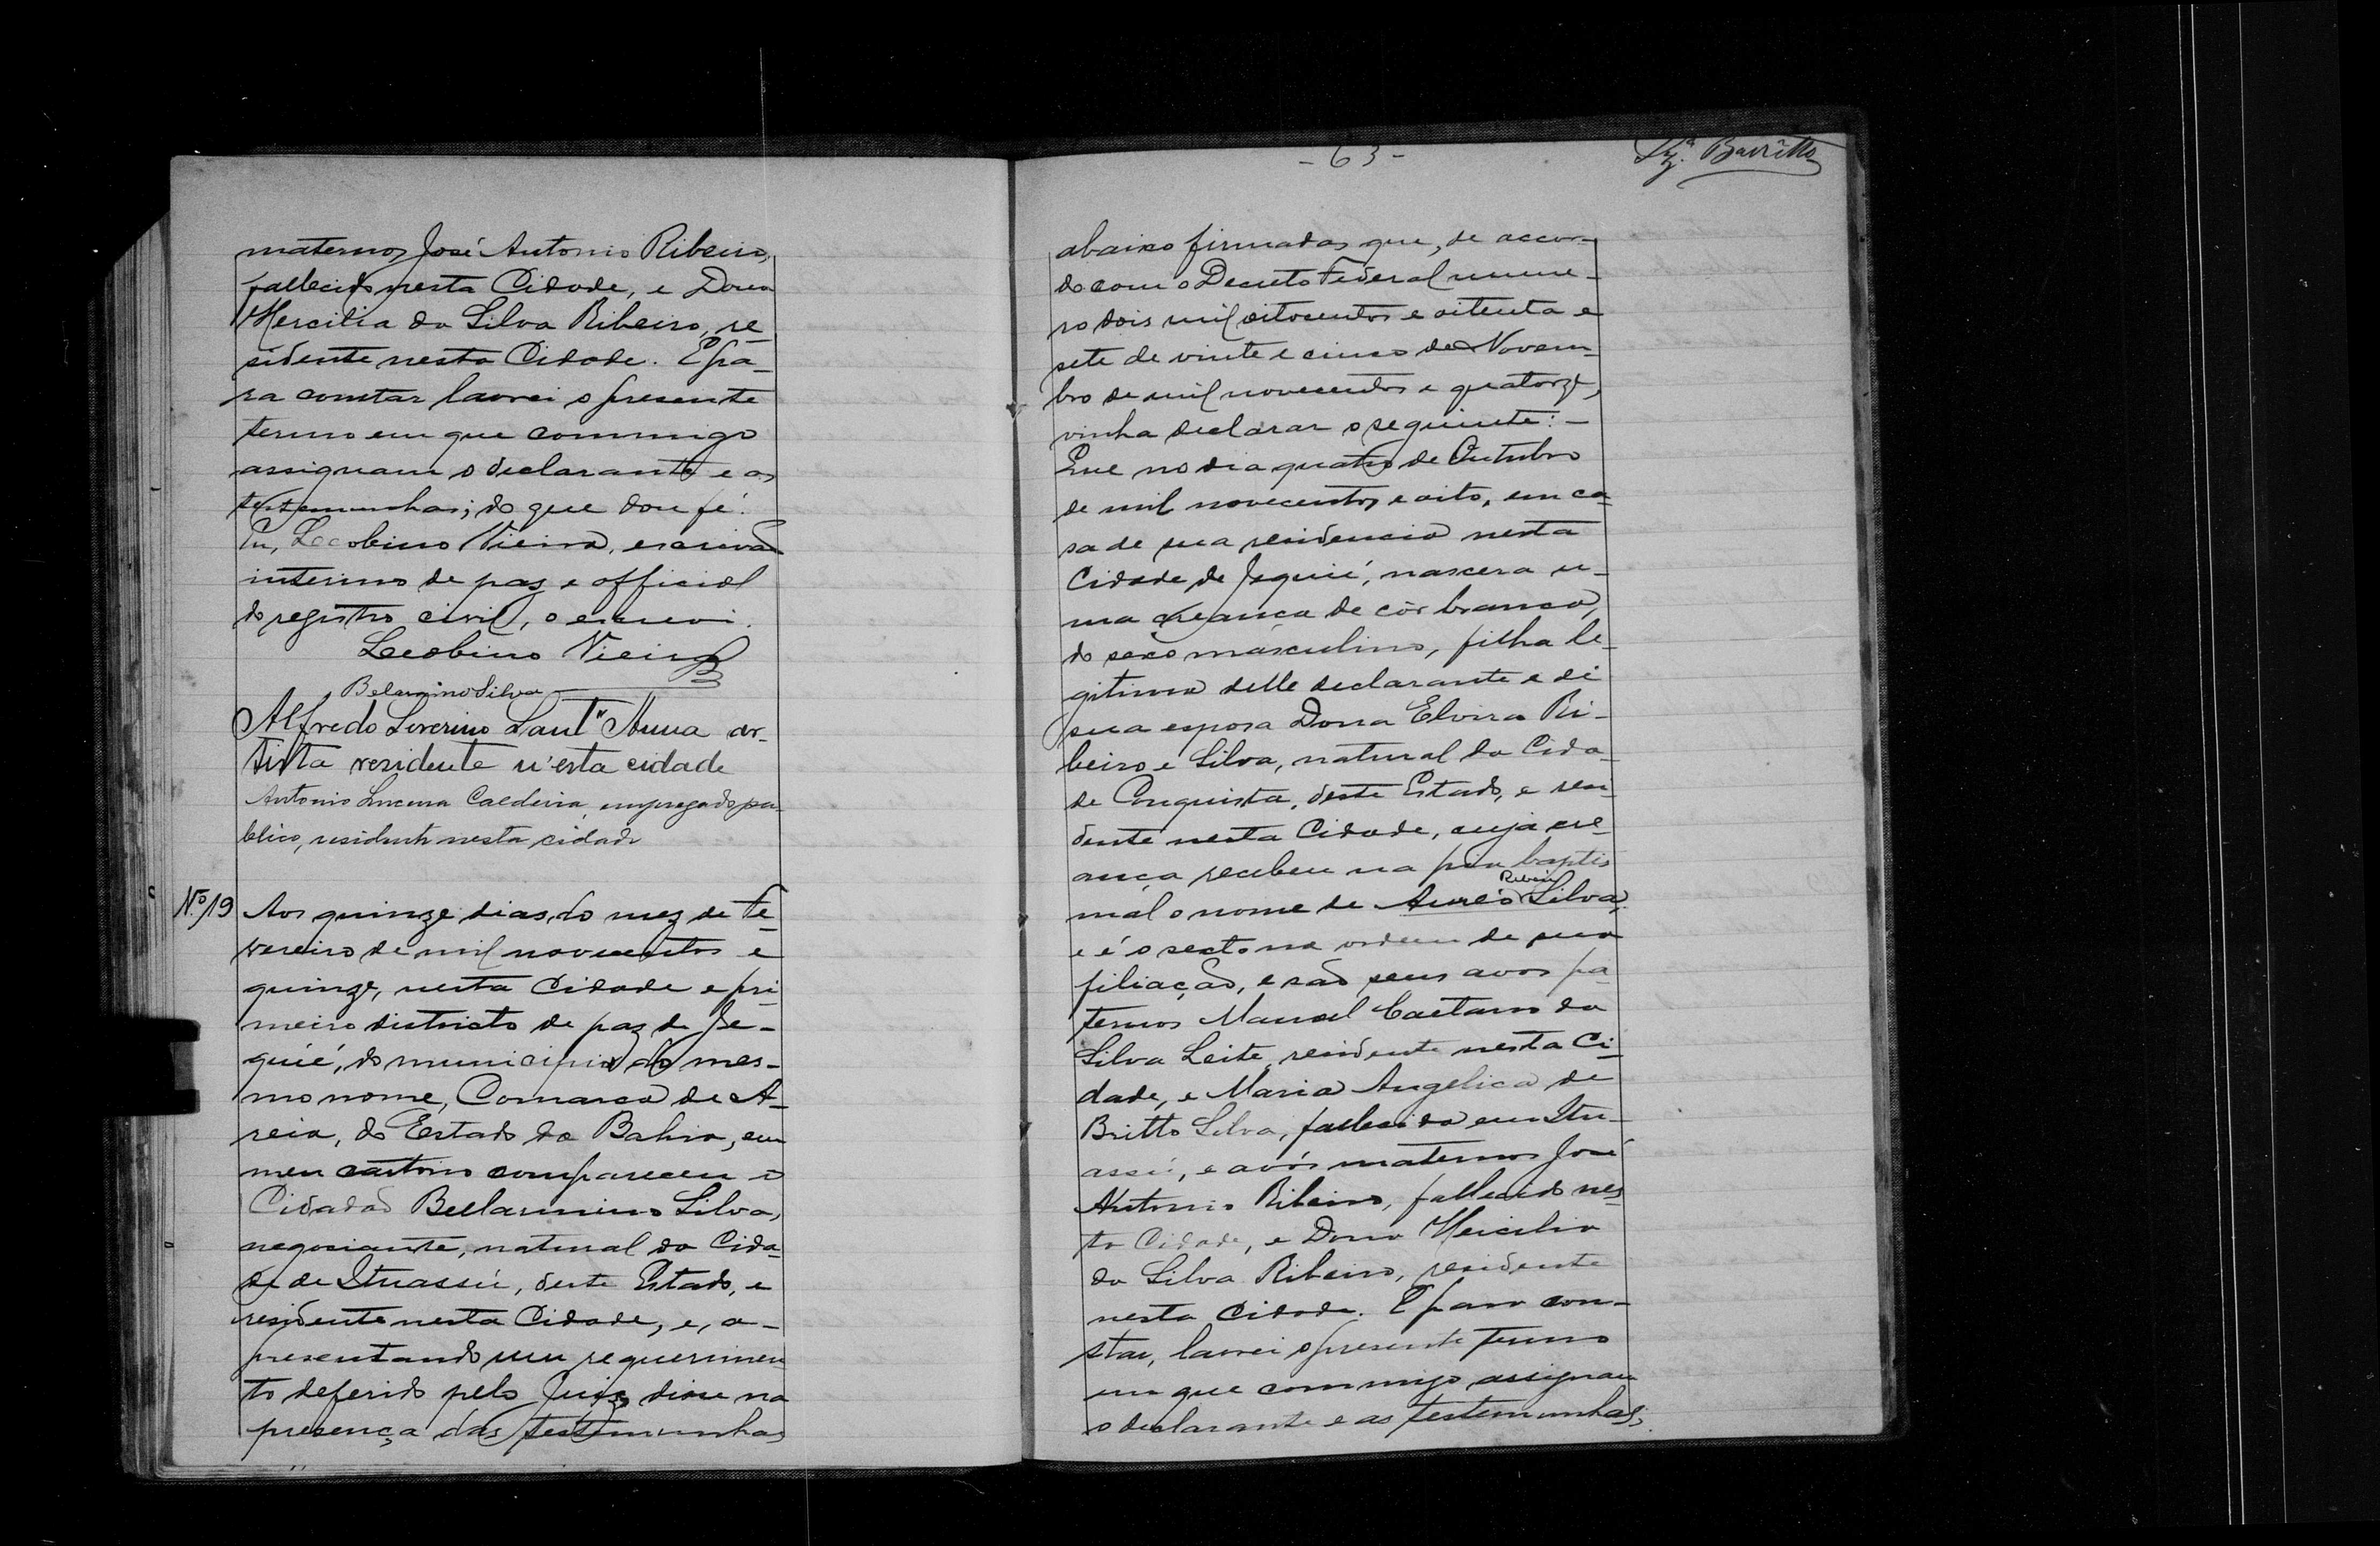 maternos José Antonio Ribeiro,
fallecido nesta Cidade, e Dona
Hercilia da Silva Ribeiro, re
sidente nesta Cidade. E pa-
ra constar lavrei o presente
termo em que commigo
assignam o declarante e as
testemunhas; do que dou fé.
Eu, Leobino Vieira, escrivão
interino de paz e official
do registro civil, o escrevi.
Leobino Vieira
Belarmino Silva
Alfredo Severino Sant'Anna ar-
tista residente n'esta cidade
Antonio Lucena Caldeira, empregado pu-
blico, residente nesta cidade
Nº 19 Aos quinze dias do mez de Fe
vereiro de mil novecentos e
quinze, nesta Cidade e pri
meiro districto de paz de Je-
quié, do municipio do mes-
mo nome, Comarca de A-
reia, do Estado da Bahia, em
meu cartorio compareceu o
Cidadão Bellarmino Silva,
negociante, natural da Cida-
de de Ituassú, deste Estado, e
residente nesta Cidade, e, a-
presentando um requerimen
to deferido pelo Juiz disse na
presença das testemunhas
- 63 -
Barretto
abaixo firmadas que, de accor-
do com o Decreto Federal nume-
ro dois mil oitocentos e oitenta e
sete de vinte e cinco de Novem-
bro de mil novecentos e quatorze,
vinha declarar o seguinte: -
Que no dia quatro de Outubro
de mil novecentos e oito, em ca
sa de sua residencia nesta
Cidade de Jequié, nascera u-
ma creança de côr branca,
do sexo masculino, filha le-
gitima delle declarante e de
sua esposa Dona Elvira Ri-
beiro e Silva, natural da Cida-
de Conquista, deste Estado, e resi
dente nesta Cidade, cuja cre-
ança recebeu na pia baptis
Ribeiro
mal o nome de Aureo Silva,
e é o sexto na ordem de sua
filiação, e são seus avós pa-
ternos Manoel Caetano da
Silva Leite, residente nesta Ci-
dade, e Maria Angelica de
Britto Silva, fallecida em Itu-
assú, e avós maternos José
Antonio Ribeiro, fallecido nes
ta Cidade, e Dona Hercilia
da Silva Ribeiro, residente
nesta Cidade. E para con-
star, lavrei o presente termo
em que commigo assignam
o declarante e as testemunhas;